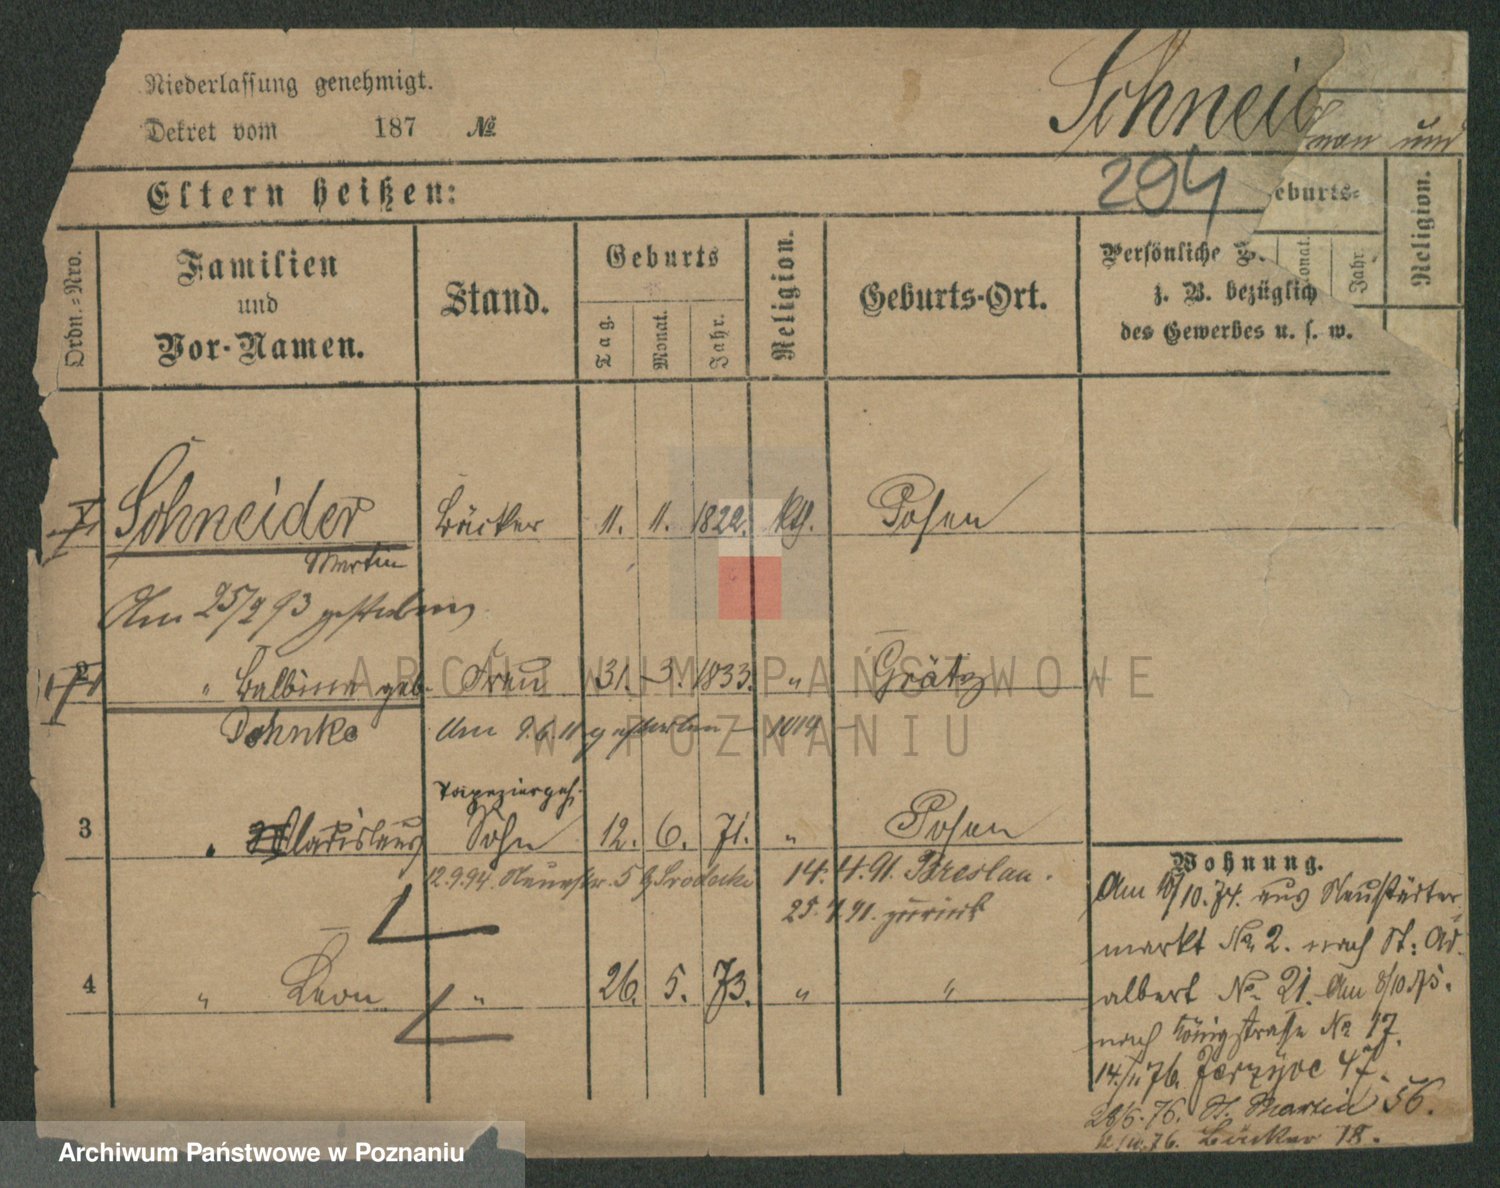 Niederlassung genehmigt.
Dekret vom 187 №
Schneid
man und
294
Eltern heißen:
eburts-
Religion.
onat.
Jahr.
Ordn.-Nro.
Familien
und
Vor-Namen.
Stand.
Geburts
Tag.
Monat.
Jahr.
Religion.
Geburts-Ort.
Persönliche
z. B. bezüglich
des Gewerbes u. s. w.
1 Schneider Bäcker 11. 11. 1822. kth. Posen
Martin
Am 25/2 93 gestorben
2 " Balbina geb. Frau 31. 3. 1833. " Grätz
Dohnke Am 9.6.11 gestorben - 1019 -
Tapeziergeh.
3 " Wladislaus Sohn 12. 6. 71. " Posen
12.9.94. Neuestr. 5 b/ Srodecki 14. 4. 91. Breslau.
25. 4. 91. zurück
4 " Leon " 26. 5. 73. " "
Wohnung.
Am 10/10. 74. aus Neustädter-
markt No. 2. nach St: Ad-
albert No. 21. Am 8/10 75.
nach Königstrasse No 17.
14./11 76. Jerzyce 47.
28/5. 76. St. Martin 56.
12/10. 76. Bäcker 18.
ARCHIWUM PAŃSTWOWE
W POZNANIU
Archiwum Państwowe w Poznaniu